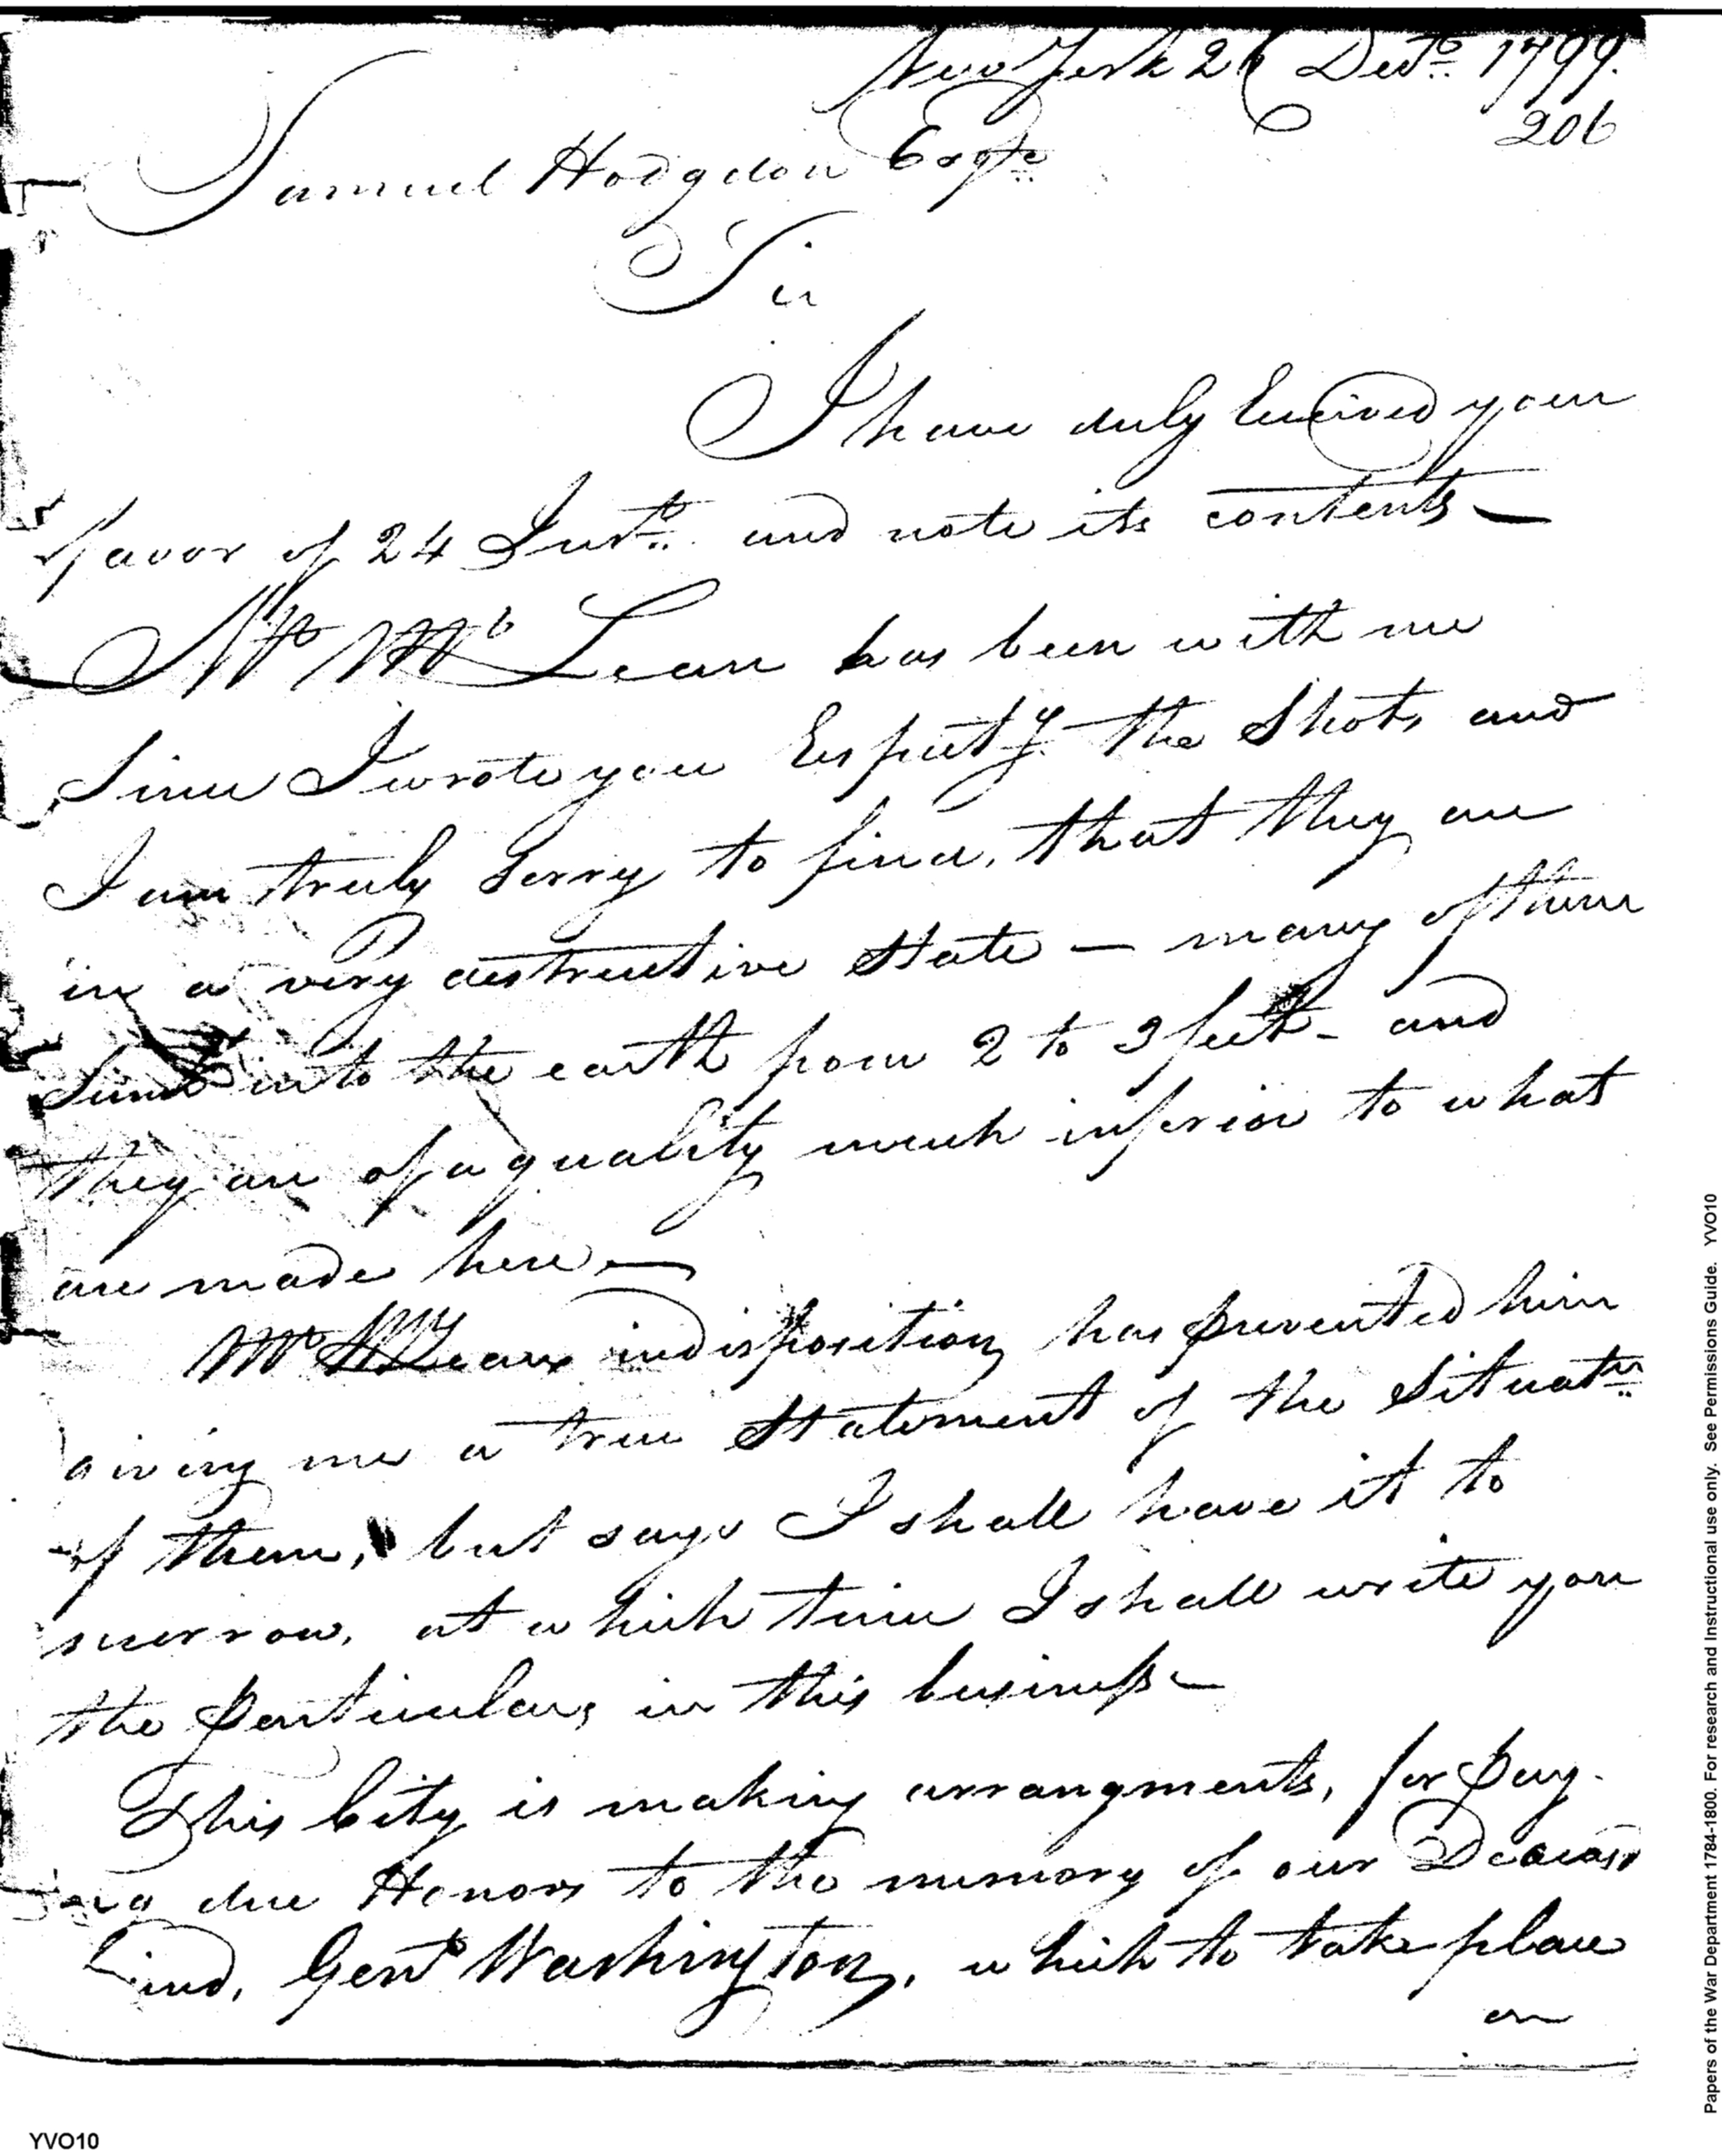 New York 26 Decr. 1799.
206
Samuel Hodgdon Esqre
Sir
I have duly Received your
favor of 24 Inst. and note its contents —
Mr McLean has been with me
Since I wrote you Respectg. the Shots, and
I am truly Sorry to find, that they are
in a very destructive State — many of them
Sunk into the earth from 2 to 3 feet - and
they are of a quality much inferior to what
are made here —
Mr McLeans indisposition has prevented him
giving me a true Statement of the Situatn
of them, but says I shall have it to
morrow, at which time I shall write you
the Particulars, in this business —
This City is making arrangments, for Pay-
ing due Honors to the memory of our Deceasd
Genl Washington, which to take place
on
YVO10
Papers of the War Department 1784-1800. For research and Instructional use only. See Permissions Guide. YVO10